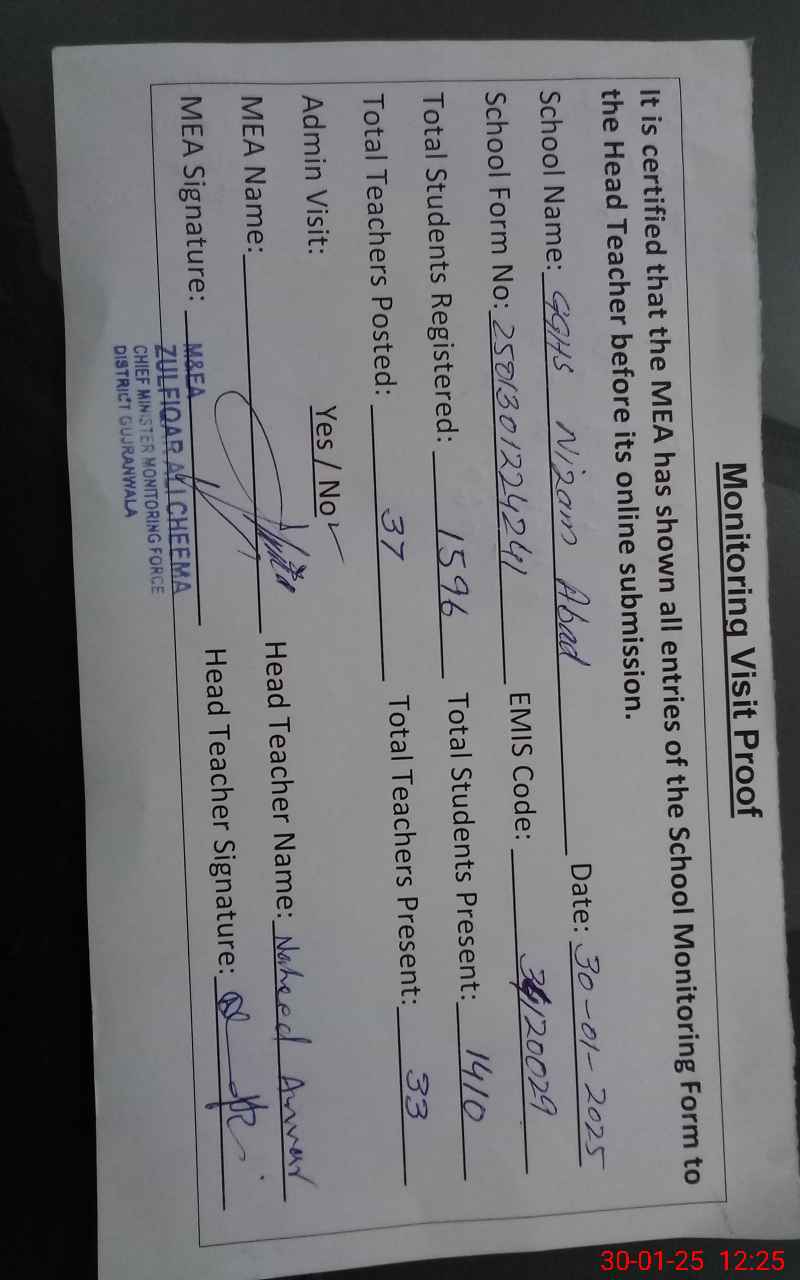 Monitoring Visit Proof
It is certified that the MEA has shown all entries of the School Monitoring Form to
the Head Teacher before its online submission.
School Name: GGHS Nizam Abad Date: 30-01-2025
School Form No: 2501301224241 EMIS Code: 34120029
Total Students Registered: 1596 Total Students Present: 1410
Total Teachers Posted: 37 Total Teachers Present: 33
Admin Visit: Yes / No ✓
MEA Name: Head Teacher Name: Naheed Anwar
MEA Signature: Head Teacher Signature:
M&EA
ZULFIQAR ALI CHEEMA
CHIEF MINISTER MONITORING FORCE
DISTRICT GUJRANWALA
30-01-25 12:25